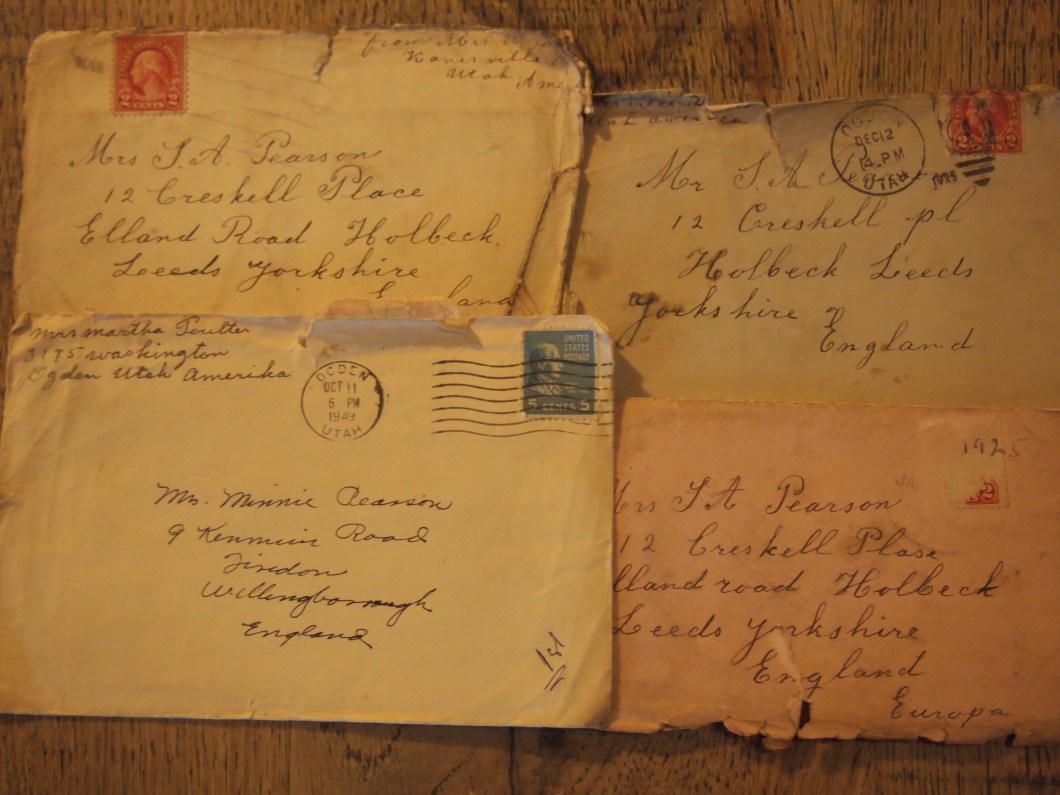 2 CENTS 2
from Mrs
Kanesville
Utah Ame
Mrs S. A. Pearson
12 Creskell Place
Elland Road Holbeck
Leeds Yorkshire
E land
america
DEC 12
4 PM
UTAH
2
Mr S. A.
12 Creskell pl
Holbeck Leeds
Yorkshire
England
Mrs Martha Poulter
3175 Washington
Ogden Utah Amerika
OGDEN
OCT 11
6 PM
1949
UTAH
UNITED
STATES
POSTAGE
5 CENTS 5
Mrs. Minnie Pearson
9 Kenmuir Road
Finedon
Willingborough
England
1st
1925
2
rs S A Pearson
12 Creskell Plase
lland road Holbeck
Leeds Yorkshire
England
Europa